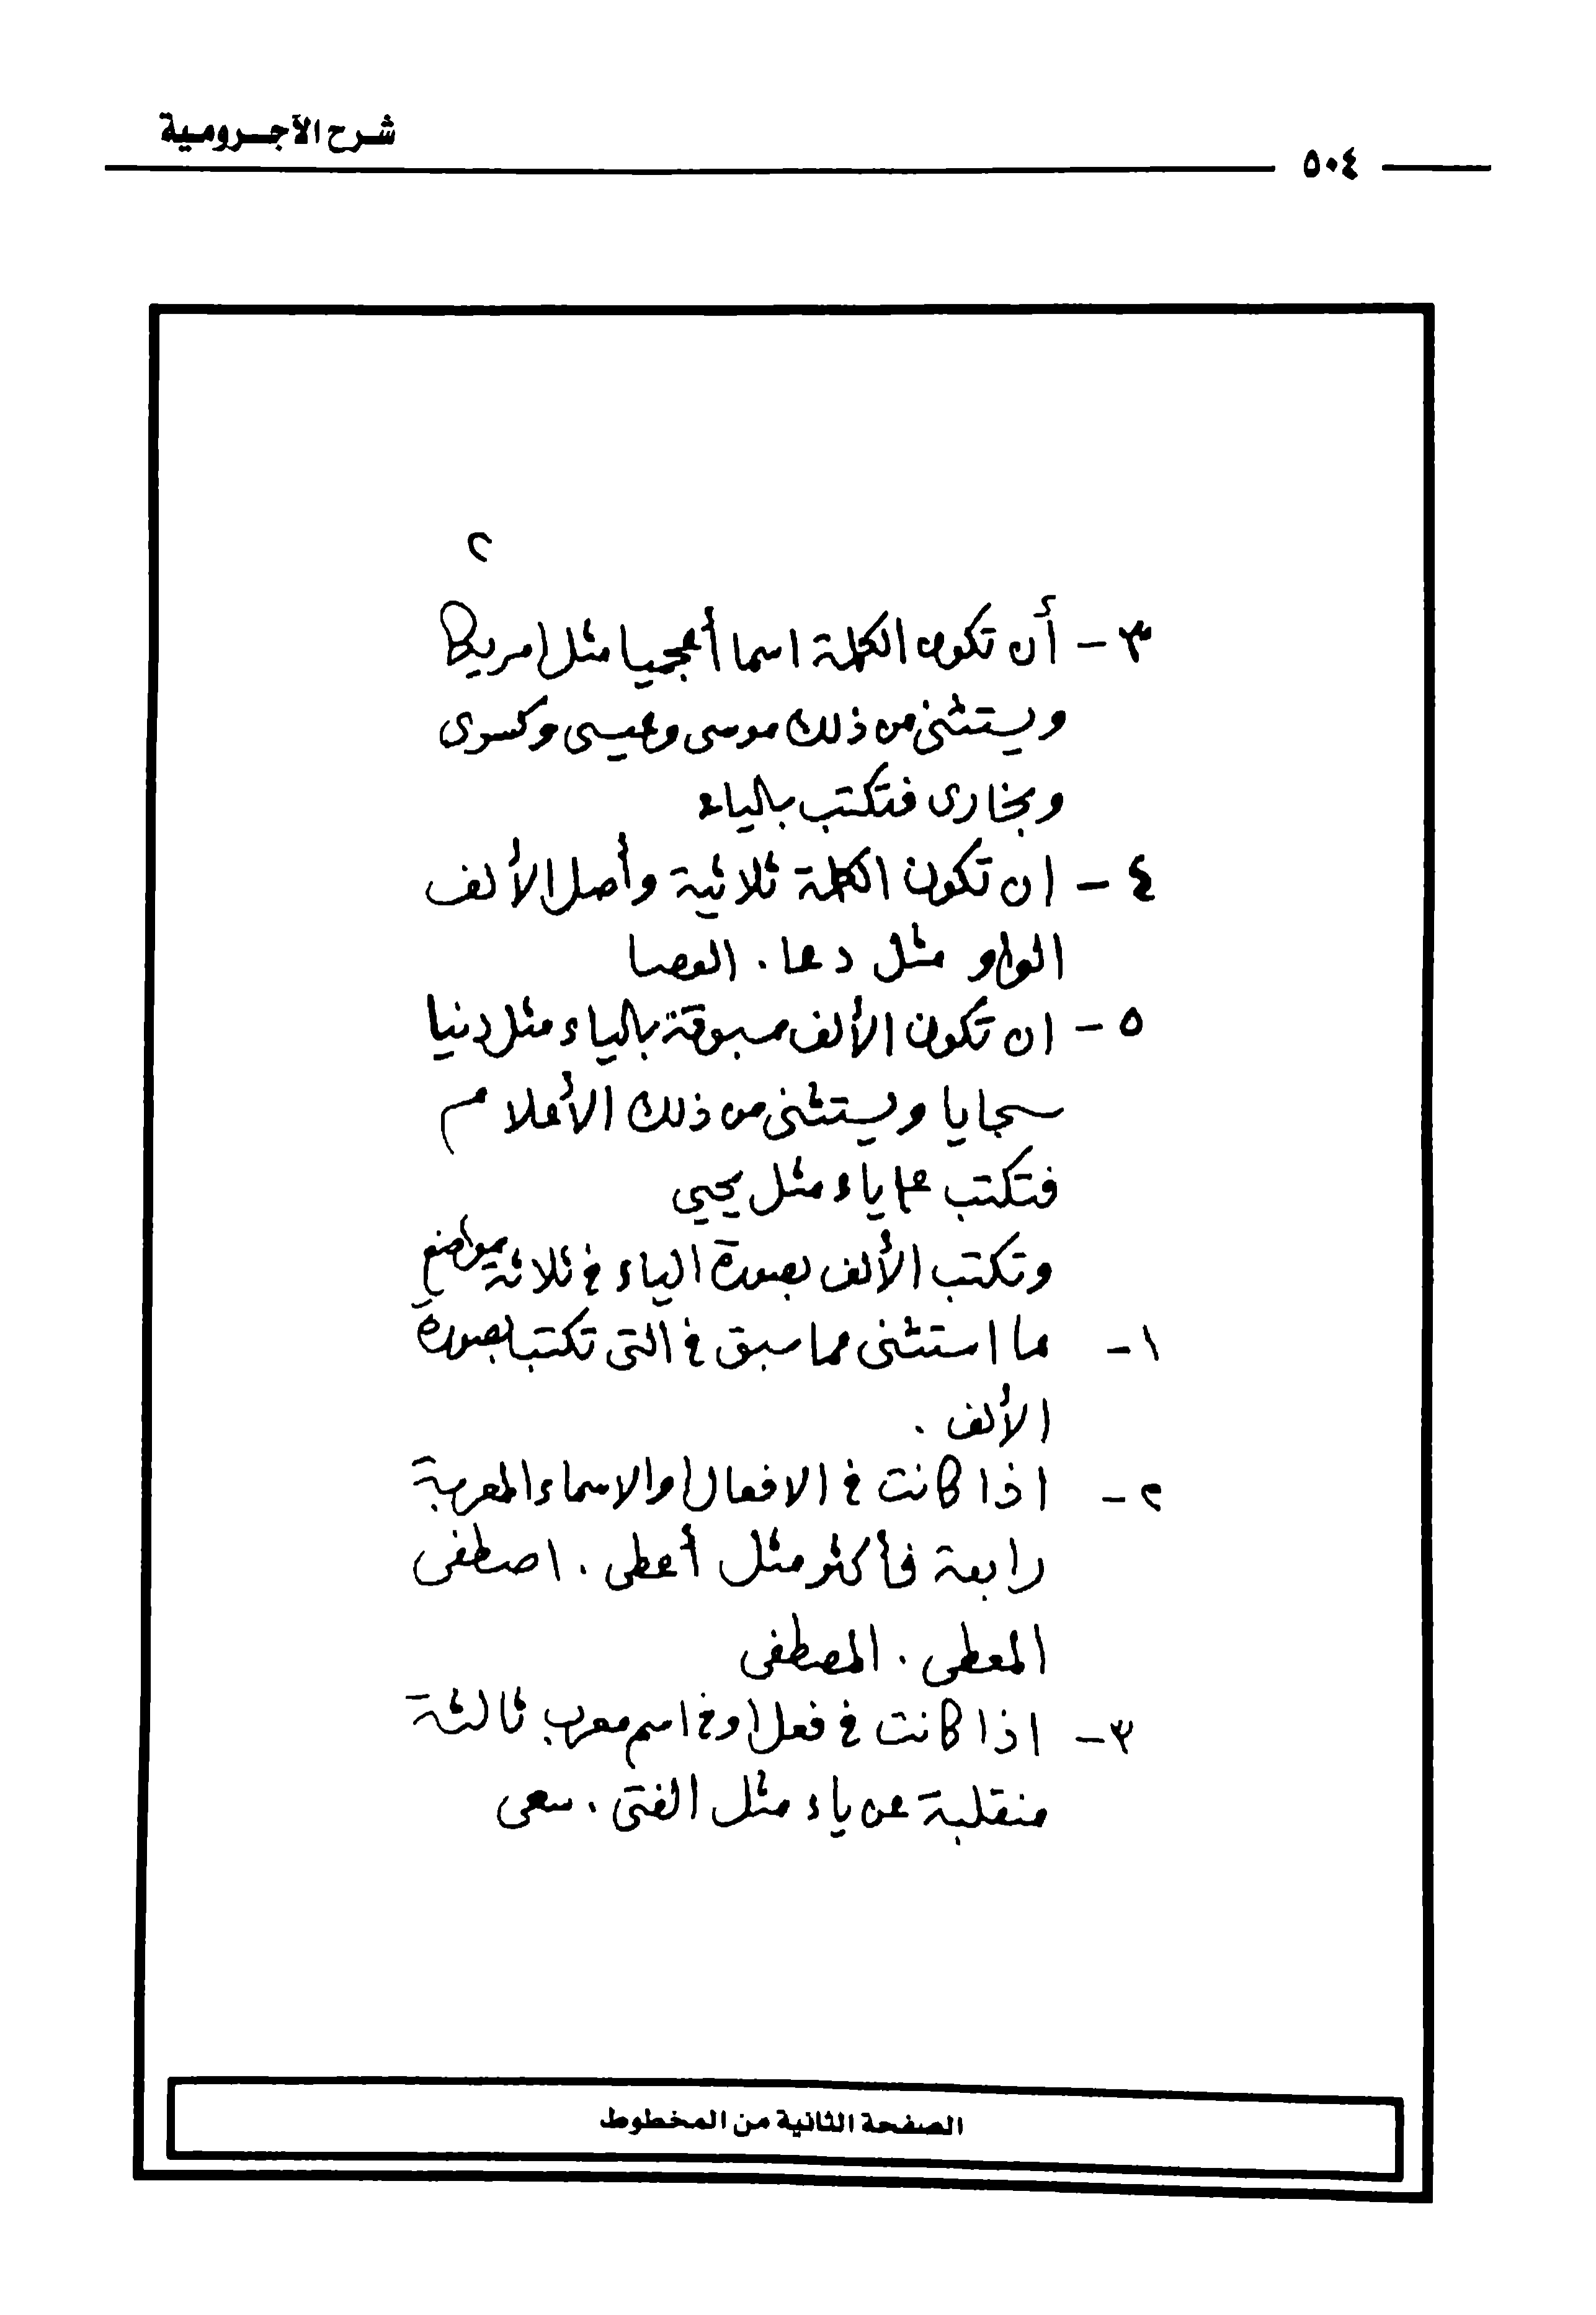 شرح الآجرومية
٥٠٤
٢
٣ - أن تكون الكلمة اسما أعجميا مثل امريكا
ويستثنى من ذلك موسى وعيسى وكسرى
وبخارى فتكتب بالياء
٤ - ان تكون الكلمة ثلاثية وأصل الألف
الواو مثل دعا . العصا
٥ - ان تكون الألف مسبوقة بالياء مثل دنيا
سجايا ويستثنى من ذلك الأعلام
فتكتب ياء مثل يحيى
وتكتب الألف بصورة الياء في ثلاثة مواضع
١ - ما استثنى مما سبق في التى تكتب بصورة
الألف .
٢ - اذا كانت في الافعال او الاسماء المعربة
رابعة فأكثر مثل أعطى . اصطفى
المعطى . المصطفى
٣ - اذا كانت في فعل او في اسم معرب ثالثة
منقلبة عن ياء مثل الفتى . سعى
الصفحة الثانية من المخطوط